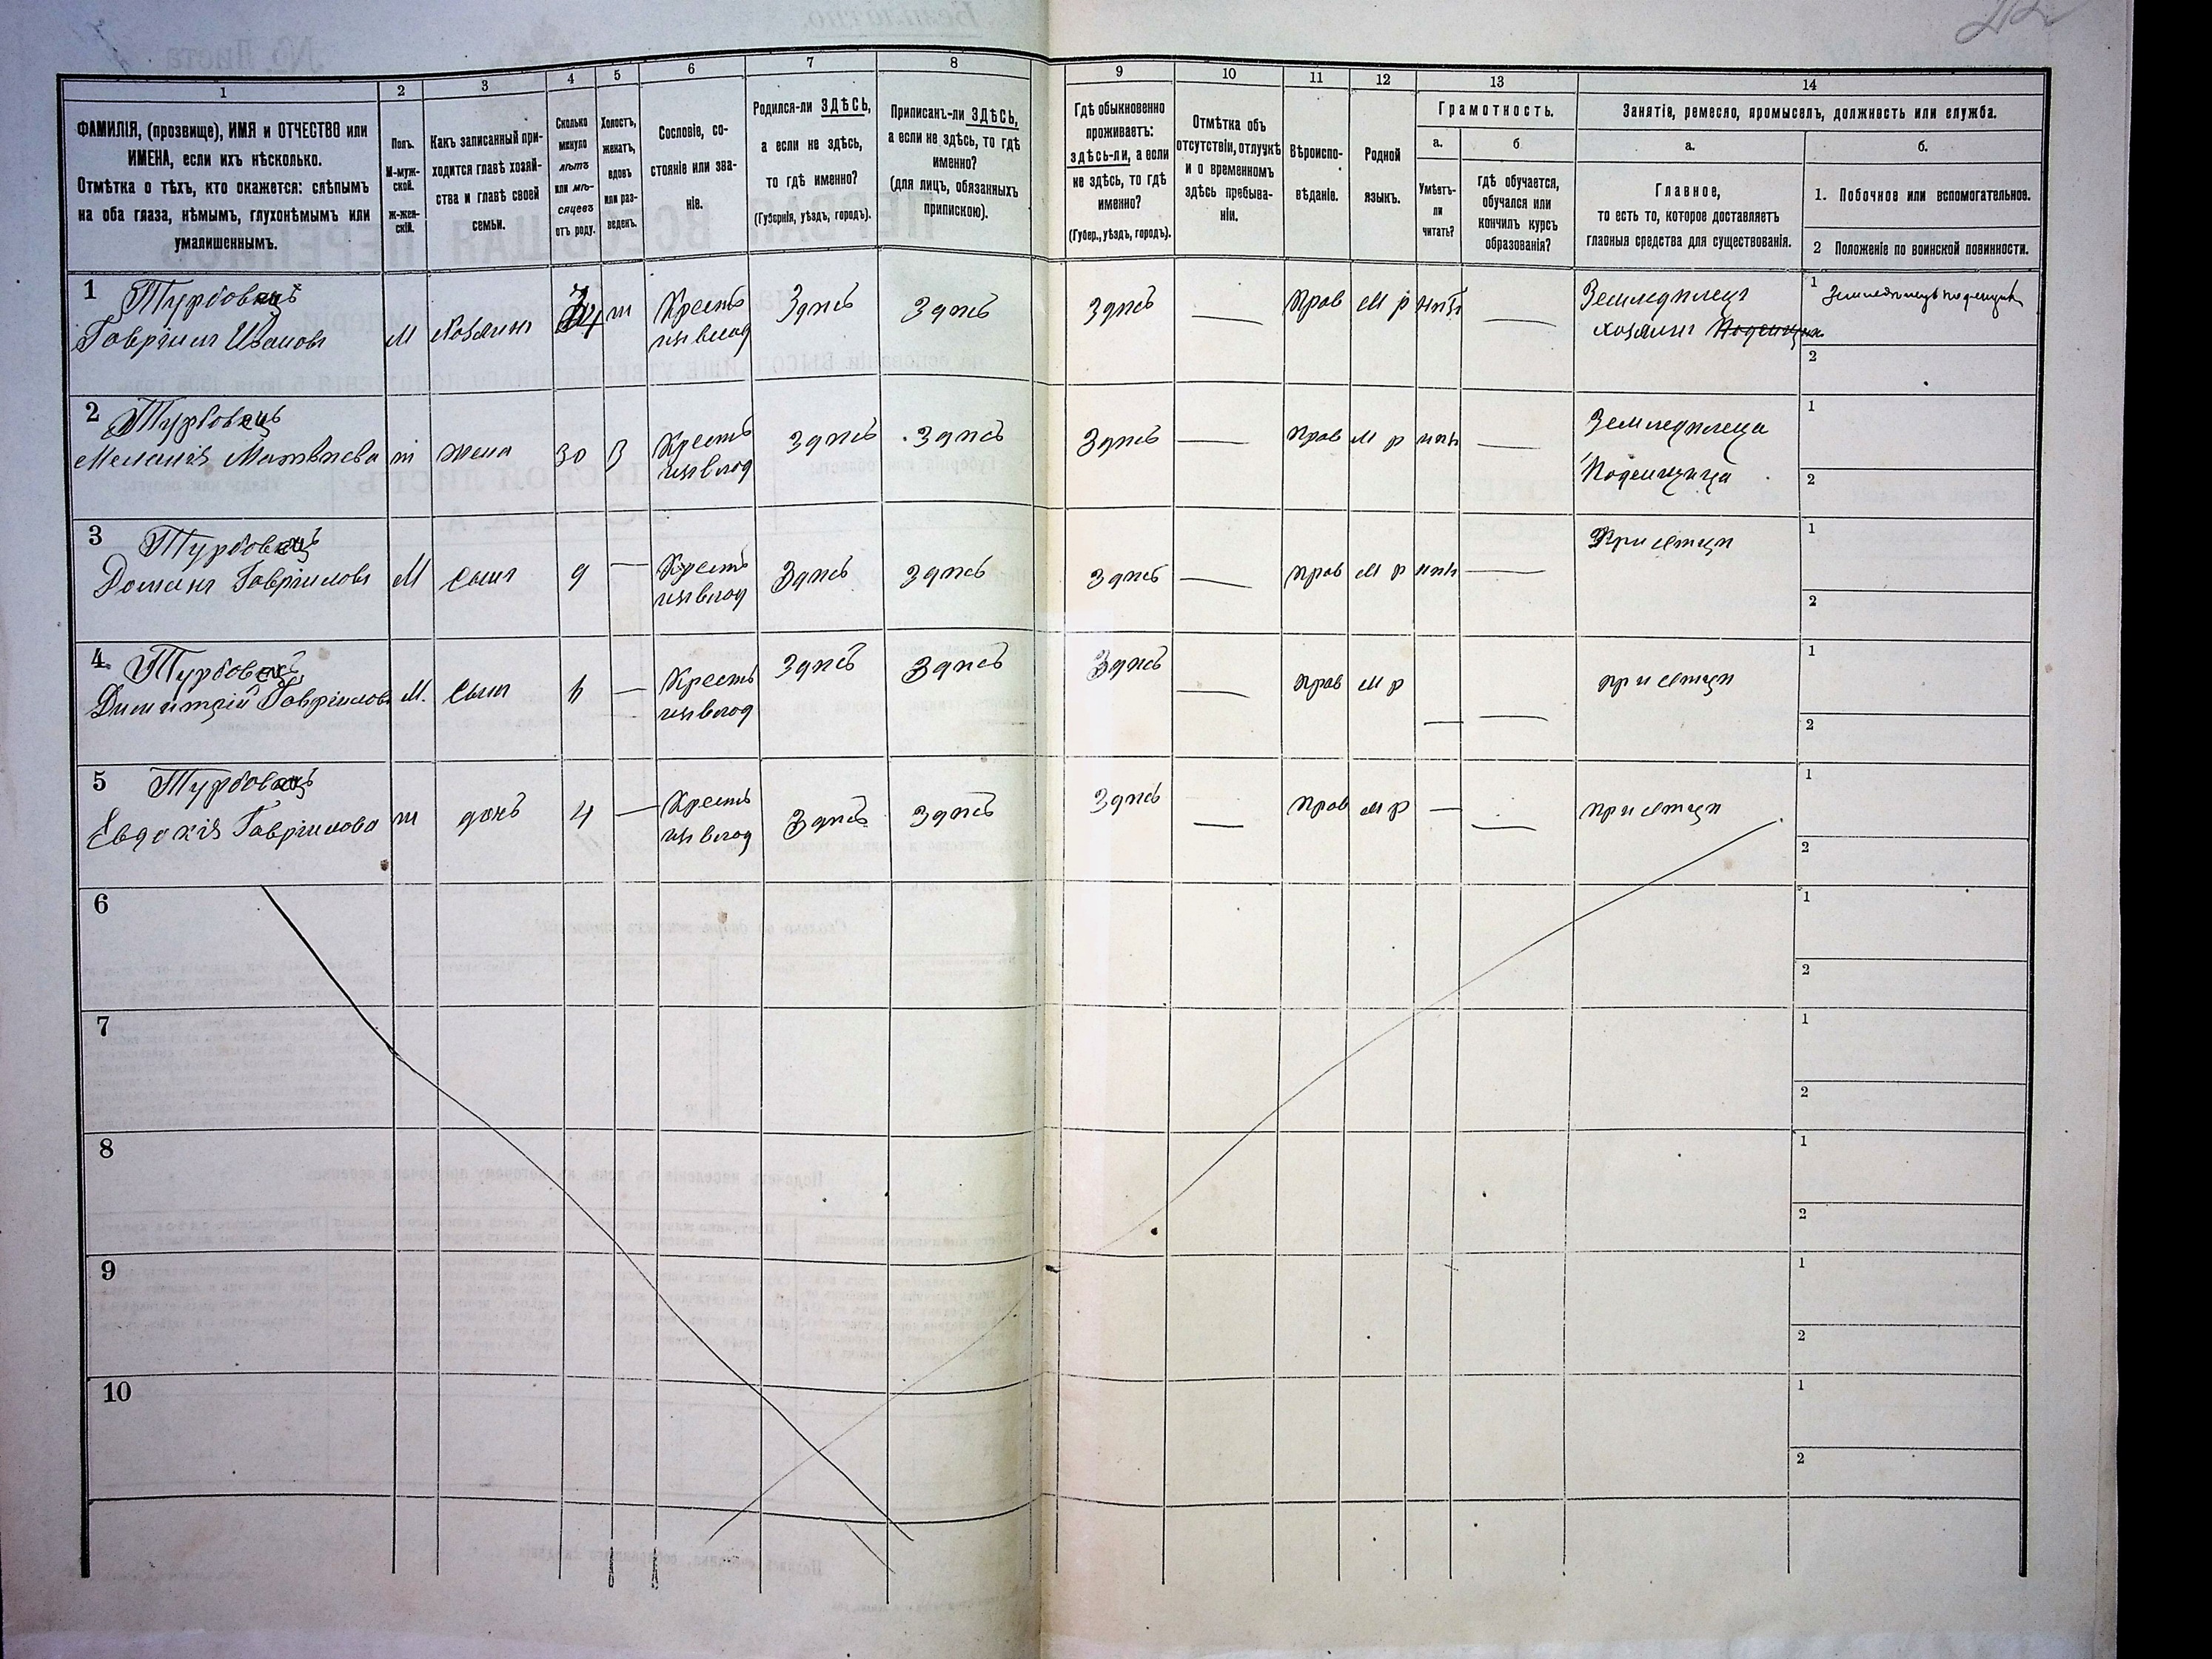 1
2
3
4
5
6
7
8
9
10
11
12
13
14
ФАМИЛІЯ, (прозвище), ИМЯ и ОТЧЕСТВО или
ИМЕНА, если ихъ нѣсколько.
Отмѣтка о тѣхъ, кто окажется: слѣпымъ
на оба глаза, нѣмымъ, глухонѣмымъ или
умалишеннымъ.
Полъ.
М-муж-
ской.
Ж-жен-
скій.
Какъ записанный при-
ходится главѣ хозяй-
ства и главѣ своей
семьи.
Сколько
минуло
лѣтъ
или мѣ-
сяцевъ
отъ роду.
Холостъ,
женатъ,
вдовъ
или раз-
веденъ.
Сословіе, со-
стояніе или зва-
ніе.
Родился-ли ЗДѢСЬ,
а если не здѣсь,
то гдѣ именно?
(Губернія, уѣздъ, городъ).
Приписанъ-ли ЗДѢСЬ,
а если не здѣсь, то гдѣ
именно?
(для лицъ, обязанныхъ
припискою).
Гдѣ обыкновенно
проживаетъ:
здѣсь-ли, а если
не здѣсь, то гдѣ
именно?
(Губер., уѣздъ, городъ).
Отмѣтка объ
отсутствіи, отлучкѣ
и о временномъ
здѣсь пребыва-
ніи.
Вѣроиспо-
вѣданіе.
Родной
языкъ.
Грамотность.
а.
Умѣетъ-
ли
читать?
б
гдѣ обучается,
обучался или
кончилъ курсъ
образованія?
Занятіе, ремесло, промыселъ, должность или служба.
а.
Главное,
то есть то, которое доставляетъ
главныя средства для существованія.
б.
1. Побочное или вспомогательное.
2 Положеніе по воинской повинности.
1 Турбовецъ
Гавріилъ Ивановъ
М
хозяинъ
ж
Крестъ
изъ влад
Здѣсь
Здѣсь
Здѣсь
—
Прав
М р
нѣтъ
—
Земледѣлецъ
хозяинъ Поденщикъ
1 Земледѣлецъ поденщикъ
2
2 Турбовецъ
Меланія Матвѣева
ж
жена
30
З
Крестъ
изъ влад
Здѣсь
Здѣсь
Здѣсь
—
Прав
М р
нѣтъ
—
Земледѣлица
Поденщица
1
2
3 Турбовецъ
Романъ Гавріиловъ
М
сынъ
9
—
Крестъ
изъ влад
Здѣсь
Здѣсь
Здѣсь
—
Прав
М р
нѣтъ
—
При отцѣ
1
2
4 Турбовецъ
Димитрій Гавріиловъ
М.
сынъ
—
Крестъ
изъ влад
Здѣсь
Здѣсь
Здѣсь
—
Прав
М р
—
—
при отцѣ
1
2
5 Турбовецъ
Евдокія Гавріилова
ж
дочь
4
—
Крестъ
изъ влад
Здѣсь
Здѣсь
Здѣсь
—
Прав
М р
—
—
при отцѣ
1
2
6
1
2
7
1
2
8
1
2
9
1
2
10
1
2